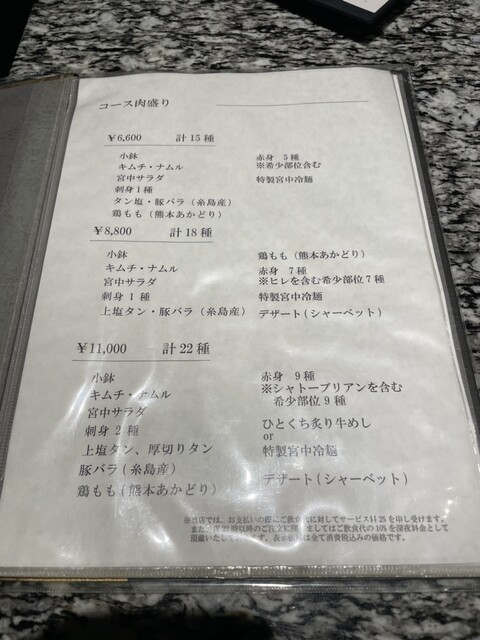 コース肉盛り
￥6,600 計15種
小鉢
キムチ・ナムル
宮中サラダ
刺身1種
タン塩・豚バラ（糸島産）
鶏もも（熊本あかどり）
赤身 5種
※希少部位含む
特製宮中冷麺
￥8,800 計18種
小鉢
キムチ・ナムル
宮中サラダ
刺身 1 種
上塩タン・豚バラ（糸島産）
鶏もも（熊本あかどり）
赤身 7種
※ヒレを含む希少部位7種
特製宮中冷麺
デザート(シャーベット)
￥11,000 計22種
小鉢
キムチ・ナムル
宮中サラダ
刺身 2 種
上塩タン、厚切りタン
豚バラ(糸島産)
鶏もも(熊本あかどり)
赤身 9種
※シャトーブリアンを含む
希少部位 9種
ひとくち炙り牛めし
or
特製宮中冷麺
デザート(シャーベット)
※当店では、お支払いの際にご飲食代に対してサービス料
を申し受けます。
また、
時以降のご注文に
ましてはご飲食代の10%を深夜料金として
頂戴いたしております。表示価格は全て消費税込みの価格です。